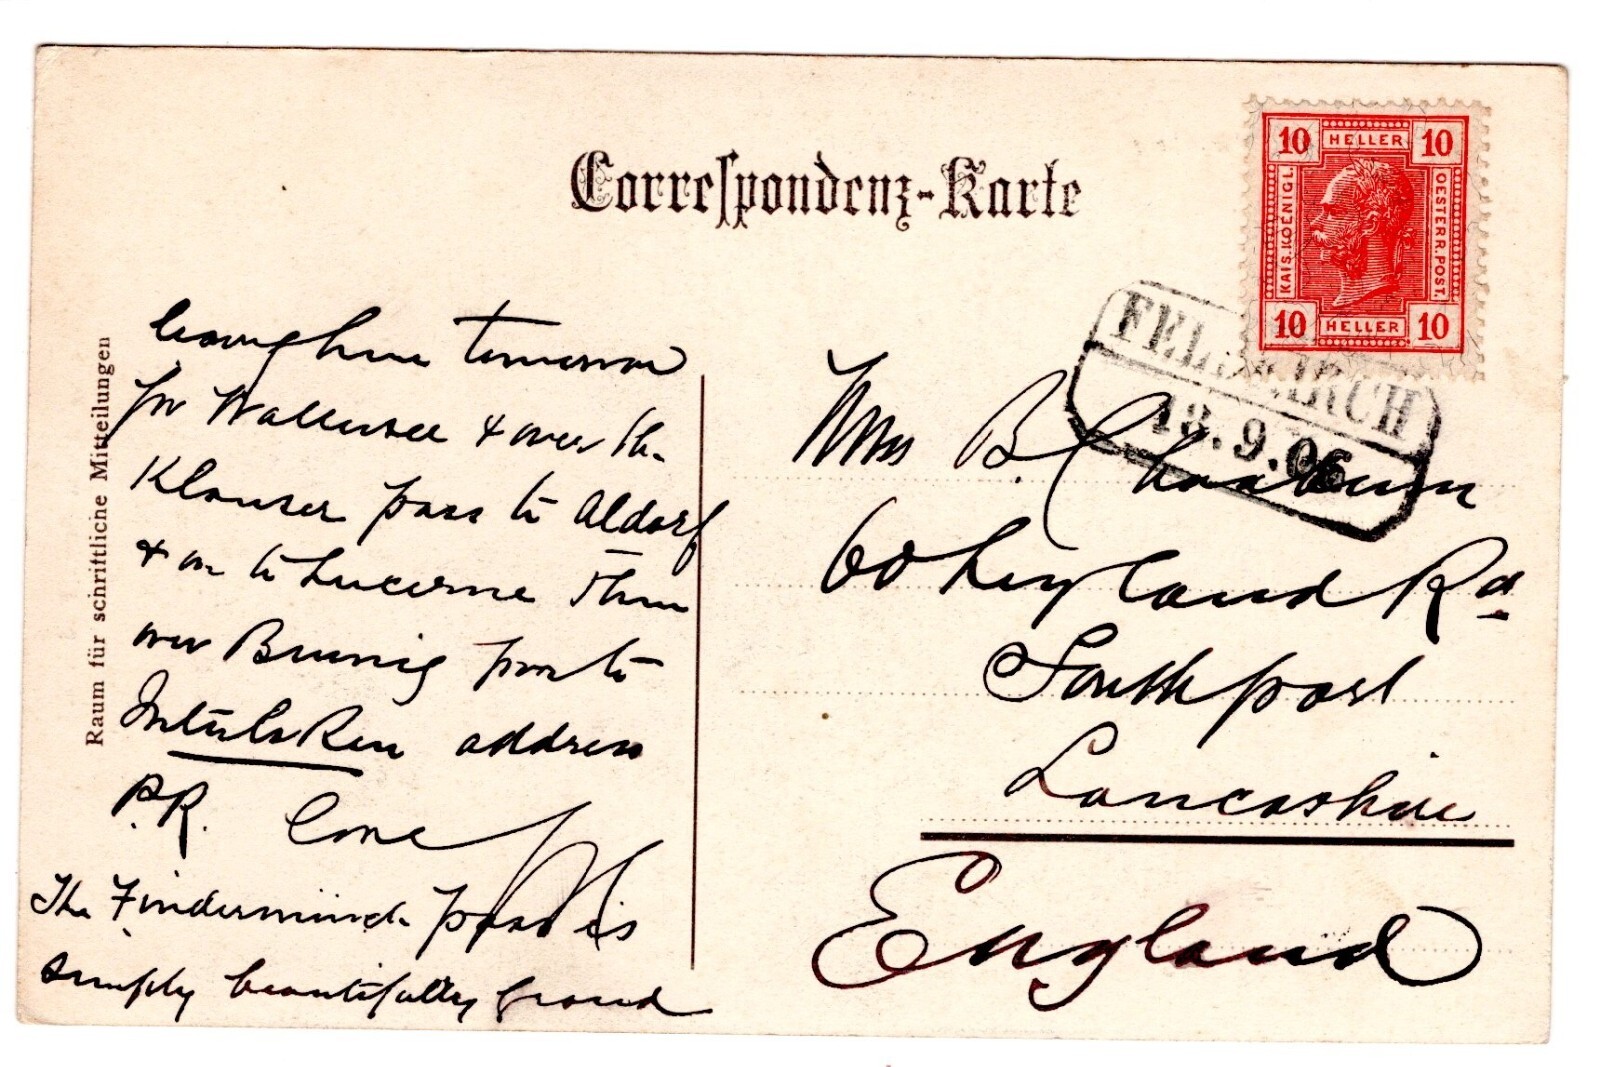 Correspondenz-Karte
10 HELLER 10
KAIS. KOENIGL.
OESTERR. POST.
10 HELLER 10
FELDKIRCH
13.9.06
Raum für schrittliche Mitteilungen
leaving here tomorrow
for Wallensee & over the
Klausen pass to Aldorf
& on to Lucerne then
over Brunig pass to
Interlaken address
P.R. love
The Findermunde pass is
simply beautifully grand
Miss B.
60 Leyland Rd
Southport
Lancashire
England